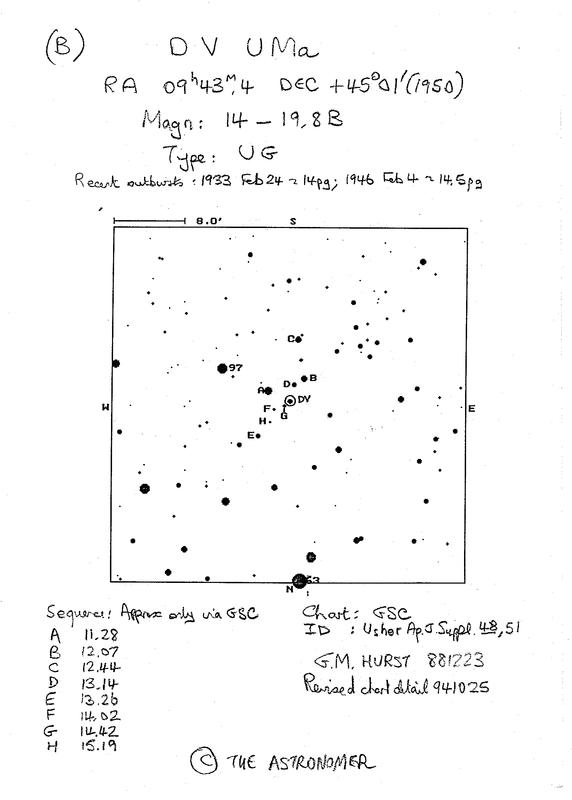 (B)
DV UMa
RA 09ʰ43ᵐ.4 DEC +45°01'(1950)
Magn: 14 – 19.8B
Type: UG
Recent outbursts: 1933 Feb 24 ~ 14pg; 1946 Feb 4 ~ 14.5pg
8.0'
S
C
97
B
D
A
DV
F
G
H
E
W
E
63
N
Sequence: Approx only via GSC
A 11.28
B 12.07
C 12.44
D 13.14
E 13.26
F 14.02
G 14.42
H 15.19
Chart: GSC
ID : Usher Ap.J.Suppl. 48,51
G.M. HURST 881223
Revised chart detail 941025
© THE ASTRONOMER